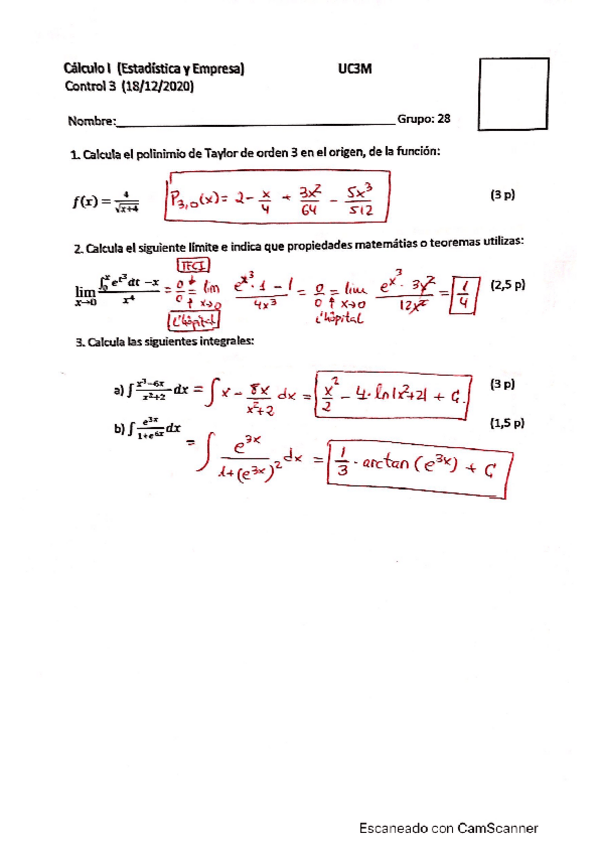 Cálculo I (Estadística y Empresa) UC3M
Control 3 (18/12/2020)
Nombre:______ Grupo: 28
1. Calcula el polinimio de Taylor de orden 3 en el origen, de la función:
f(x) = 4/√(x+4) P₃,₀(x) = 2 - x/4 + 3x²/64 - 5x³/512 (3 p)
2. Calcula el siguiente límite e indica que propiedades matemátias o teoremas utilizas:
TFCI
lim x→0 (∫₀ˣ e^(t³) dt - x)/x⁴ = 0/0 = lim x→0 (e^(x³)·1 - 1)/4x³ = 0/0 = lim x→0 (e^(x³)·3x²)/12x² = 1/4 (2,5 p)
L'hôpital L'hôpital
3. Calcula las siguientes integrales:
a) ∫ (x³-6x)/(x²+2) dx = ∫ x - 8x/(x²+2) dx = x²/2 - 4·ln|x²+2| + C. (3 p)
b) ∫ e^(3x)/(1+e^(6x)) dx (1,5 p)
= ∫ e^(3x)/(1+(e^(3x))²) dx = 1/3 · arctan(e^(3x)) + C
Escaneado con CamScanner